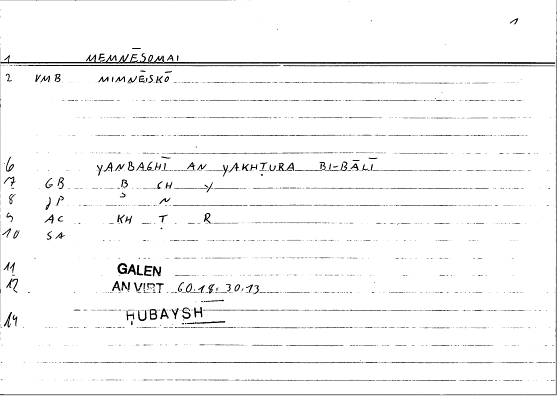 1
1 MEMNĒSOMAI
2 VMB MIMNĒISKŌ
6 YANBAGHĪ AN YAKHṬURA BI-BĀLĪ
7 GB B GH Y
8 JP N
9 AC KH Ṭ R
10 SA
11 GALEN
12 AN VIRT 60.18. 30.13
14 ḤUBAYSH